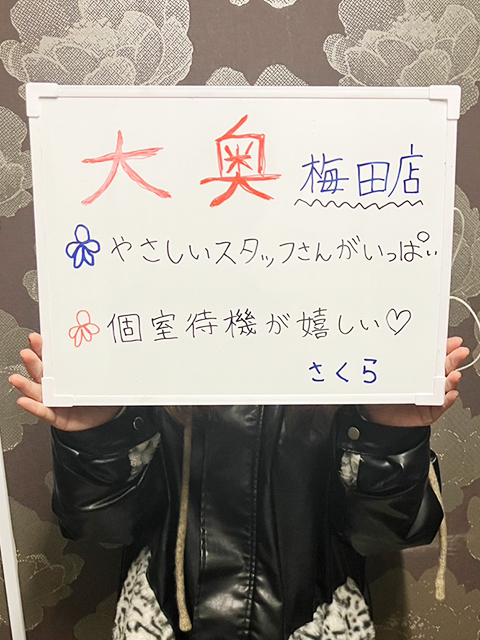 大奥 梅田店
やさしいスタッフさんがいっぱい
個室待機が嬉しい♡
さくら